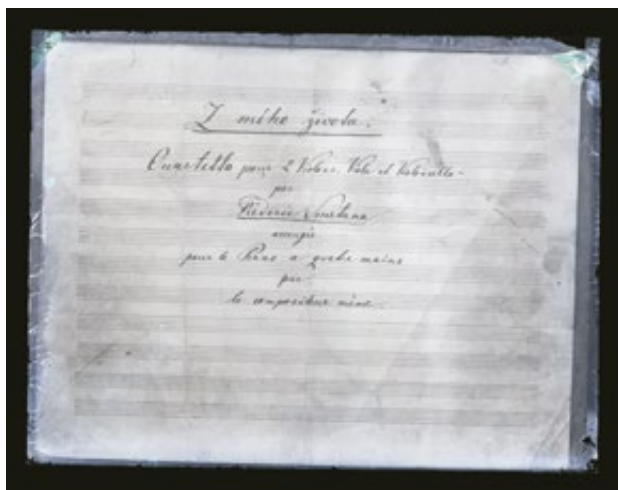 Z mého života.
Quartetto pour 2 Violons, Viola et Violoncello -
par
Fréderic Smetana
arrangé
pour le Piano a quatre mains
par
le compositeur même.